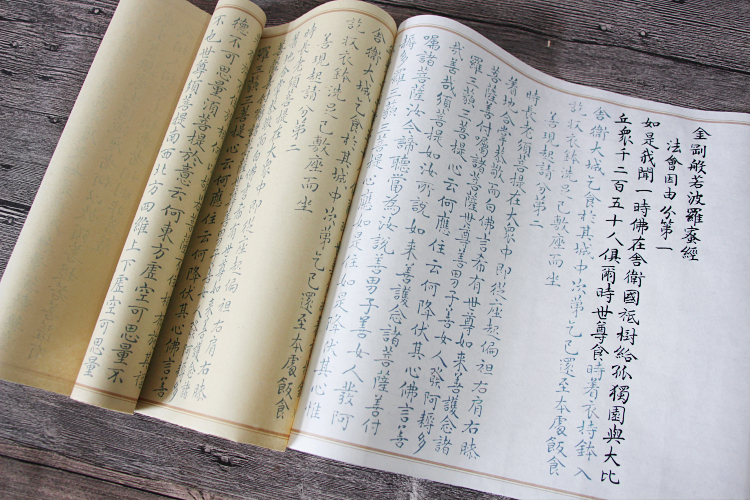 金剛般若波羅蜜經
法會因由分第一
如是我聞一時佛在舍衛國祇樹給孤獨園與大比
丘眾千二百五十人俱爾時世尊食時著衣持鉢入
舍衛大城乞食於其城中次第乞已還至本處飯食
訖收衣鉢洗足已敷座而坐
善現起請分第二
時長老須菩提在大眾中即從座起偏袒右肩右膝
著地合掌恭敬而白佛言希有世尊如來善護念諸
菩薩善付囑諸菩薩世尊善男子善女人發阿耨多
羅三藐三菩提心云何應住云何降伏其心佛言善
哉善哉須菩提如汝所說如來善護念諸菩薩善付
囑諸菩薩汝今諦聽當為汝說善男子善女人發阿
耨多羅三藐三菩提心應如是住如是降伏其心惟
舍衛大城乞食於其城中次第乞已還至本處飯食
訖收衣鉢洗足已敷座而坐
善現起請分第二
時長老須菩提在大眾中即從座起偏袒右肩右膝
羅三藐三菩提心云何應住云何降伏其心佛言善
德不可思量須菩提於意云何東方虛空可思量不
不也世尊須菩提南西北方四維上下虛空可思量不